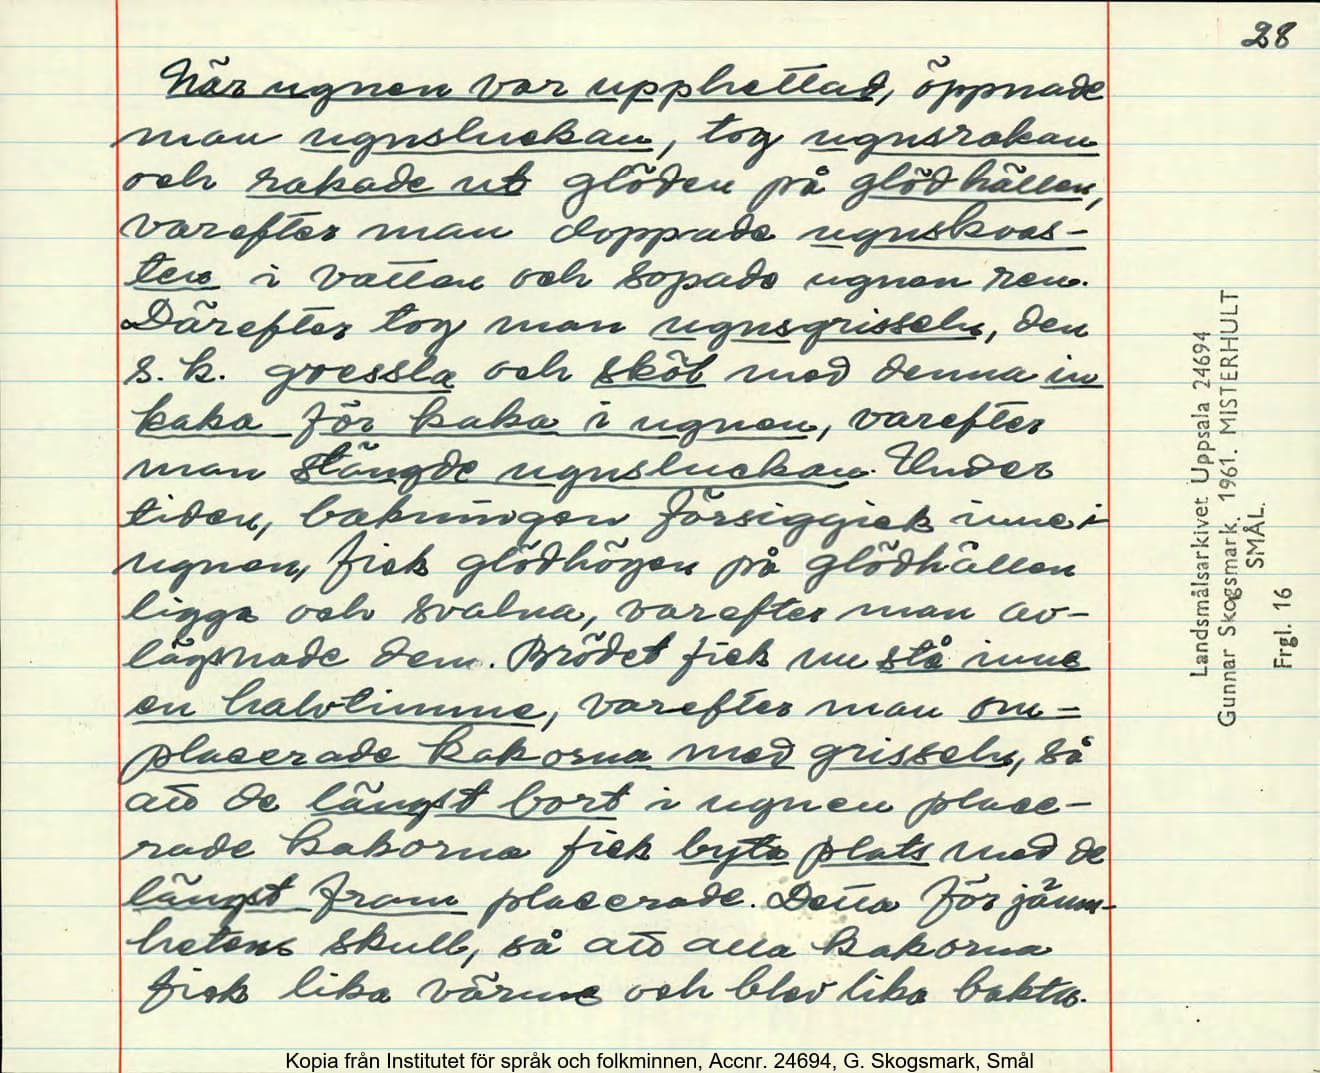 28
När ugnen var upphettad, öppnade
man ugnsluckan, tog ugnsrakan
och rakade ut glöden på glödhällen,
varefter man doppade ugnskvas-
ten i vatten och sopade ugnen ren.
Därefter tog man ugnsgrisseln, den
s.k. gressla och sköt med denna in
kaka för kaka i ugnen, varefter
man stängde ugnsluckan. Under
tiden, bakningen försiggick inne i
ugnen, fick glödhögen på glödhällen
ligga och svalna, varefter man av-
lägsnade den. Brödet fick nu stå inne
en halvtimme, varefter man om-
placerade kakorna med grisseln, så
att de längst bort i ugnen place-
rade kakorna fick byta plats med de
längst fram placerade. Detta för jämn-
hetens skull, så att alla kakorna
fick lika värme och blev lika bakta.
Landsmålsarkivet Uppsala 24694
Gunnar Skogsmark. 1961. MISTERHULT
SMÅL.
Frgl. 16
Kopia från Institutet för språk och folkminnen, Accnr. 24694, G. Skogsmark, Smål